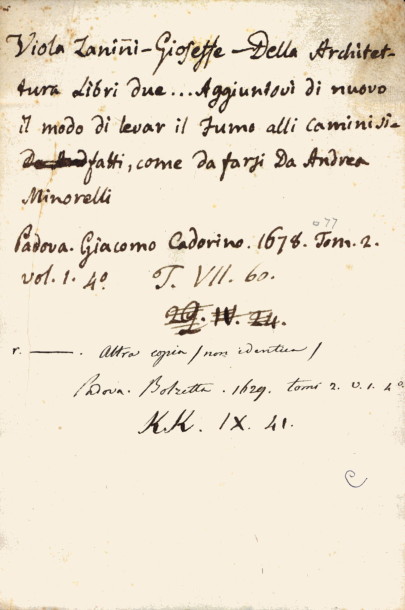 Viola Zaniñi-Gioseffe-Della Architet-
tura Libri due...Aggiuntovi di nuovo
il modo di levar il Fumo alli Camini si-
fatti, come da farsi Da Andrea
Minorelli
077
Padova. Giacomo Cadorino. 1678. Tom. 2.
vol. 1. 4º T. VII. 60.
29. IV. 24.
r. ——. Altra copia (non identica)
Padova. Bolzetta. 1629. tomi 2. v. 1. 4º
KK. IX. 41.
C